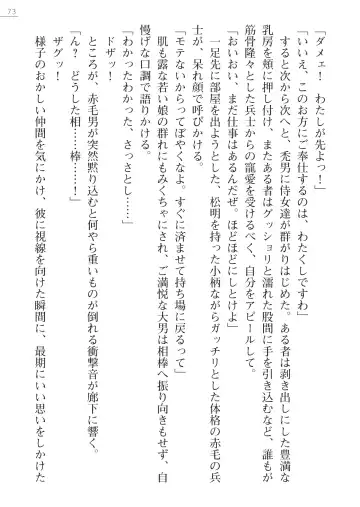 73
「ダメェ！　わたしが先よっ！」
「いいえ、このお方にご奉仕するのは、わたくしですわ」
　すると次から次へと、禿男に侍女達が群がりはじめた。ある者は剥き出しにした豊満な
乳房を頬に押し付け、またある者はグッショリと濡れた股間に手を引き込むなど、誰もが
筋骨隆々とした兵士からの寵愛を受けるべく、自分をアピールして。
「おいおい、まだ仕事はあるんだぜ。ほどほどにしとけよ」
　一足先に部屋を出ようとした、松明を持った小柄ながらガッチリとした体格の赤毛の兵
士が、呆れ顔で呼びかける。
「モテないからってぼやくなよ。すぐに済ませて持ち場に戻るって」
　肌も露な若い娘の群れにもみくちゃにされ、ご満悦な大男は相棒へ振り向きもせず、自
慢げな口調で語りかける。
「わかったわかった、さっさとし…」
　ドザッ！
　ところが、赤毛男が突然黙り込むと何やら重いものが崩れる衝撃音が廊下に響く。
「ん？　どうした相……棒……！」
　ザグッ！
　様子のおかしい仲間を気にかけ、彼に視線を向けた瞬間に、最期にいい思いをしかけた